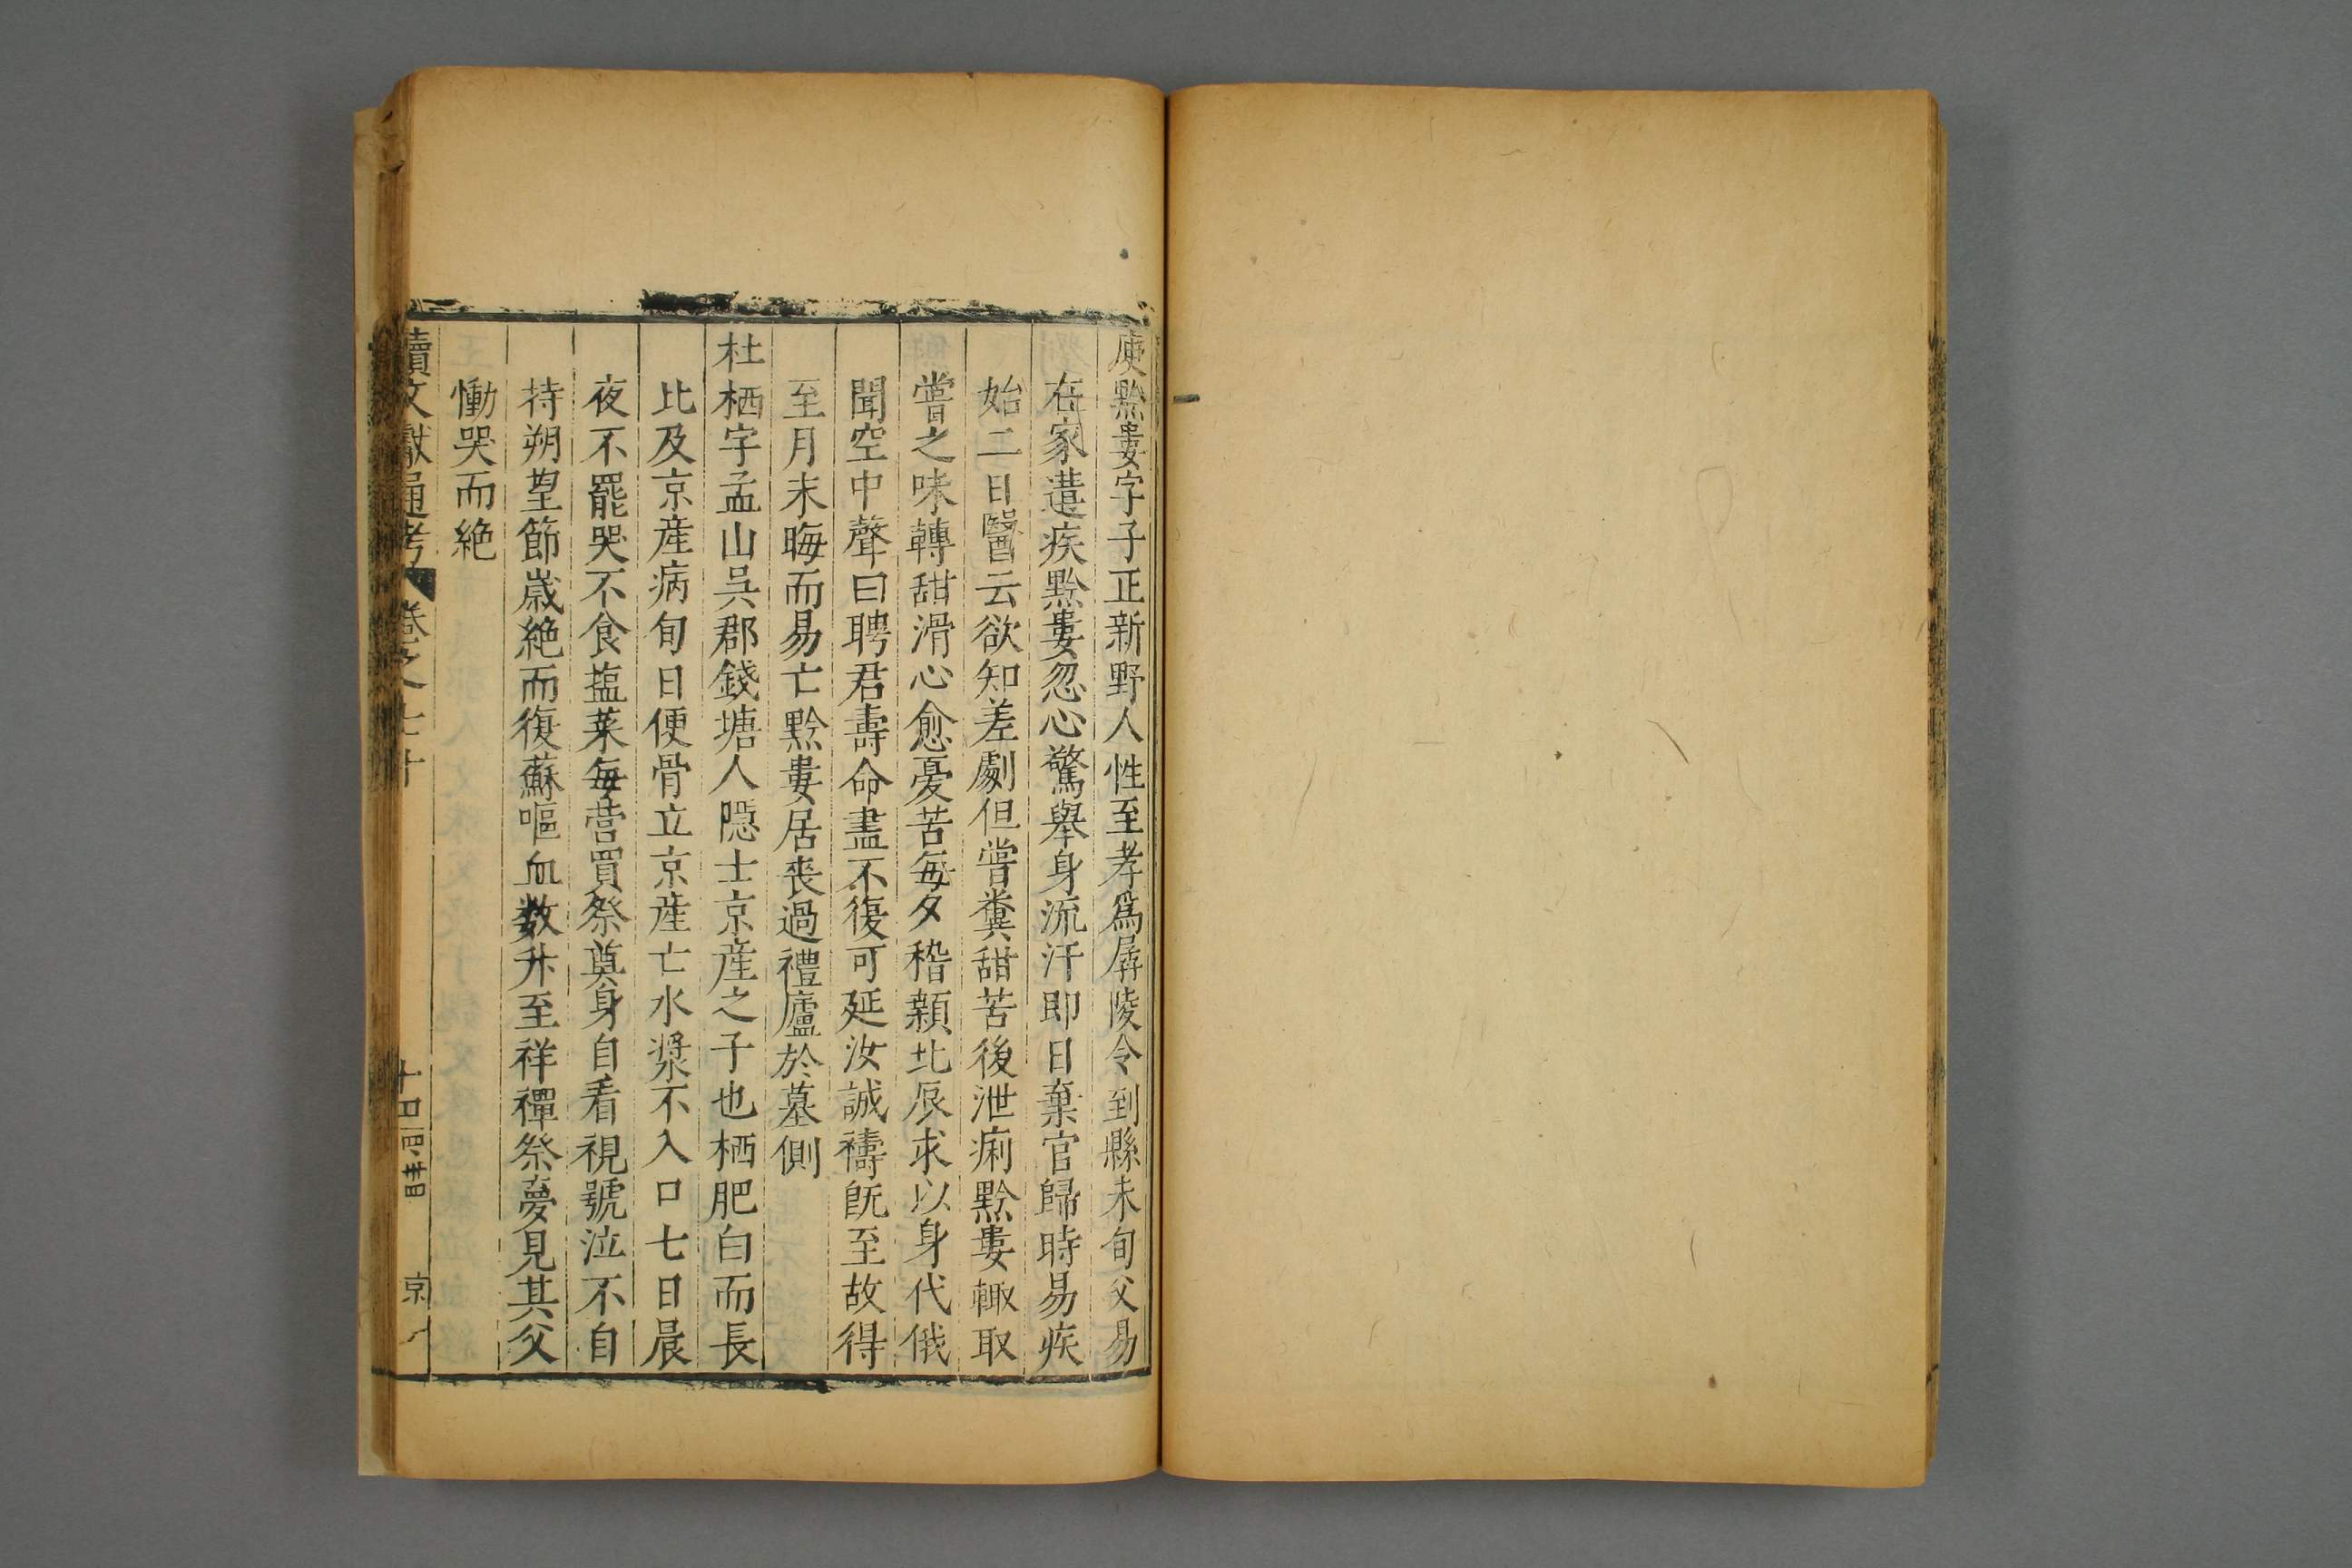 庾黔婁字子正新野人性至孝爲孱陵令到縣未旬父易
在家遘疾黔婁忽心驚舉身流汗即日棄官歸時易疾
始二日醫云欲知差劇但嘗糞甜苦後泄痢黔婁輙取
嘗之味轉甜滑心愈憂苦每夕稽顙北辰求以身代俄
聞空中聲曰聘君壽命盡不復可延汝誠禱旣至故得
至月末晦而易亡黔婁居喪過禮廬於墓側
杜栖字孟山吳郡錢塘人隱士京産之子也栖肥白而長
比及京産病旬日便骨立京産亡水漿不入口七日晨
夜不罷哭不食塩菜每營買祭奠身自看視號泣不自
持朔望節歲絶而復蘇嘔血数升至祥禫祭夢見其父
慟哭而絶
續文獻通考 卷之七十 十四 京